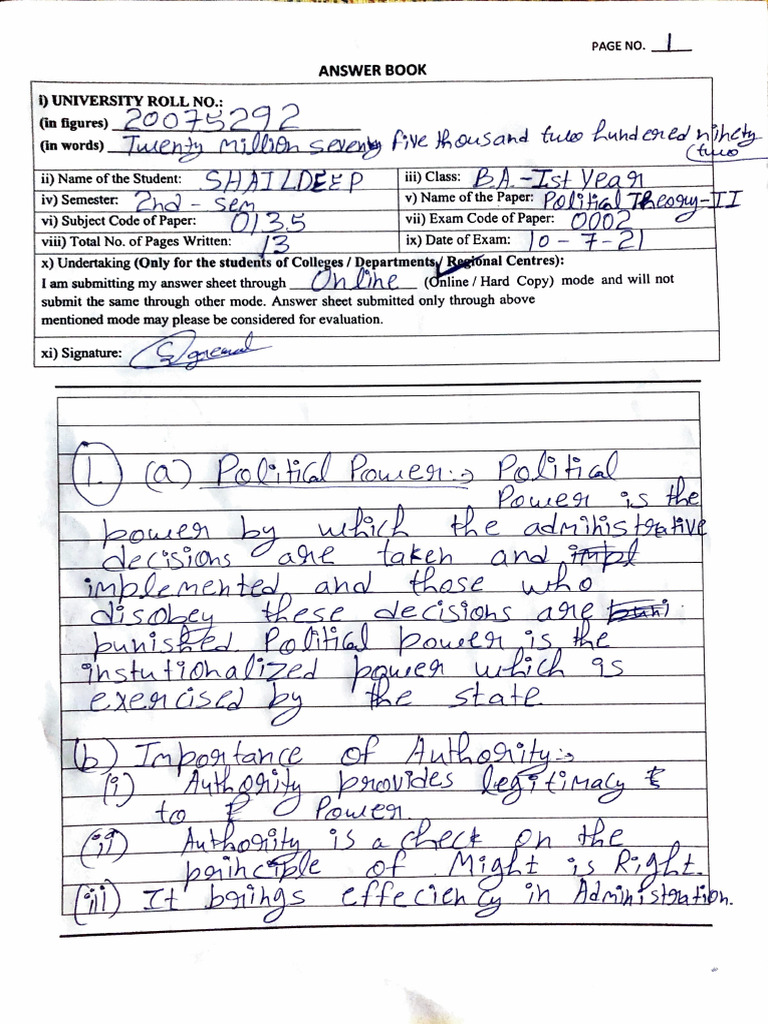 PAGE NO. 1
ANSWER BOOK
i) UNIVERSITY ROLL NO.:
(in figures) 20075292
(in words) Twenty million seventy five thousand two hundered ninety
two
ii) Name of the Student: SHAILDEEP iii) Class: B.A.-Ist Year
iv) Semester: 2nd-sem v) Name of the Paper: Political Theory-II
vi) Subject Code of Paper: 0135 vii) Exam Code of Paper: 0002
viii) Total No. of Pages Written: 13 ix) Date of Exam: 10-7-21
x) Undertaking (Only for the students of Colleges / Departments / Regional Centres):
I am submitting my answer sheet through Online (Online / Hard Copy) mode and will not
submit the same through other mode. Answer sheet submitted only through above
mentioned mode may please be considered for evaluation.
xi) Signature:
1. (a) Political Power:→ Political
Power is the
power by which the administrative
decisions are taken and impl
implemented and those who
disobey these decisions are puni
punished. Political power is the
instutionalized power which is
exercised by the state
(b) Importance of Authority:→
(i) Authority provides legitimacy t
to P Power.
(ii) Authority is a check on the
principle of Might is Right.
(iii) It brings effeciency in Administration.